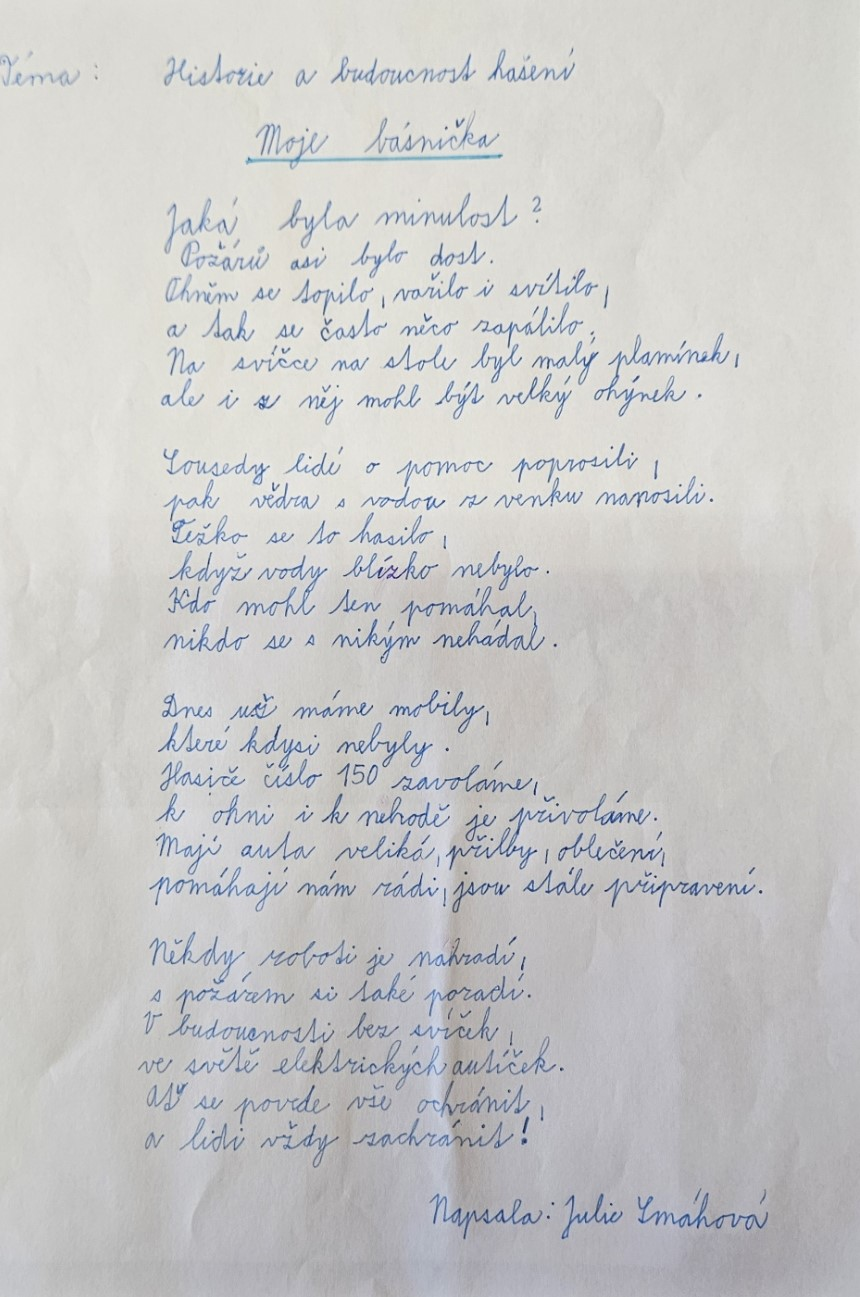 Téma: Historie a budoucnost hašení
Moje básnička
Jaká byla minulost?
Požárů asi bylo dost.
Ohněm se topilo, vařilo i svítilo,
a tak se často něco zapálilo.
Na svíčce na stole byl malý plamínek,
ale i z něj mohl být velký ohýnek.
Sousedy lidé o pomoc poprosili,
pak vědra s vodou z venku nanosili.
Těžko se to hasilo,
když vody blízko nebylo.
Kdo mohl ten pomáhal,
nikdo se s nikým nehádal.
Dnes už máme mobily,
které kdysi nebyly.
Hasiče číslo 150 zavoláme,
k ohni i k nehodě je přivoláme.
Mají auta veliká, přilby, oblečení,
pomáhají nám rádi, jsou stále připravení.
Někdy roboti je nahradí,
s požárem si také poradí.
V budoucnosti bez svíček,
ve světě elektrických autíček.
Ať se povede vše ochránit,
a lidi vždy zachránit!
Napsala: Julie Smáhová